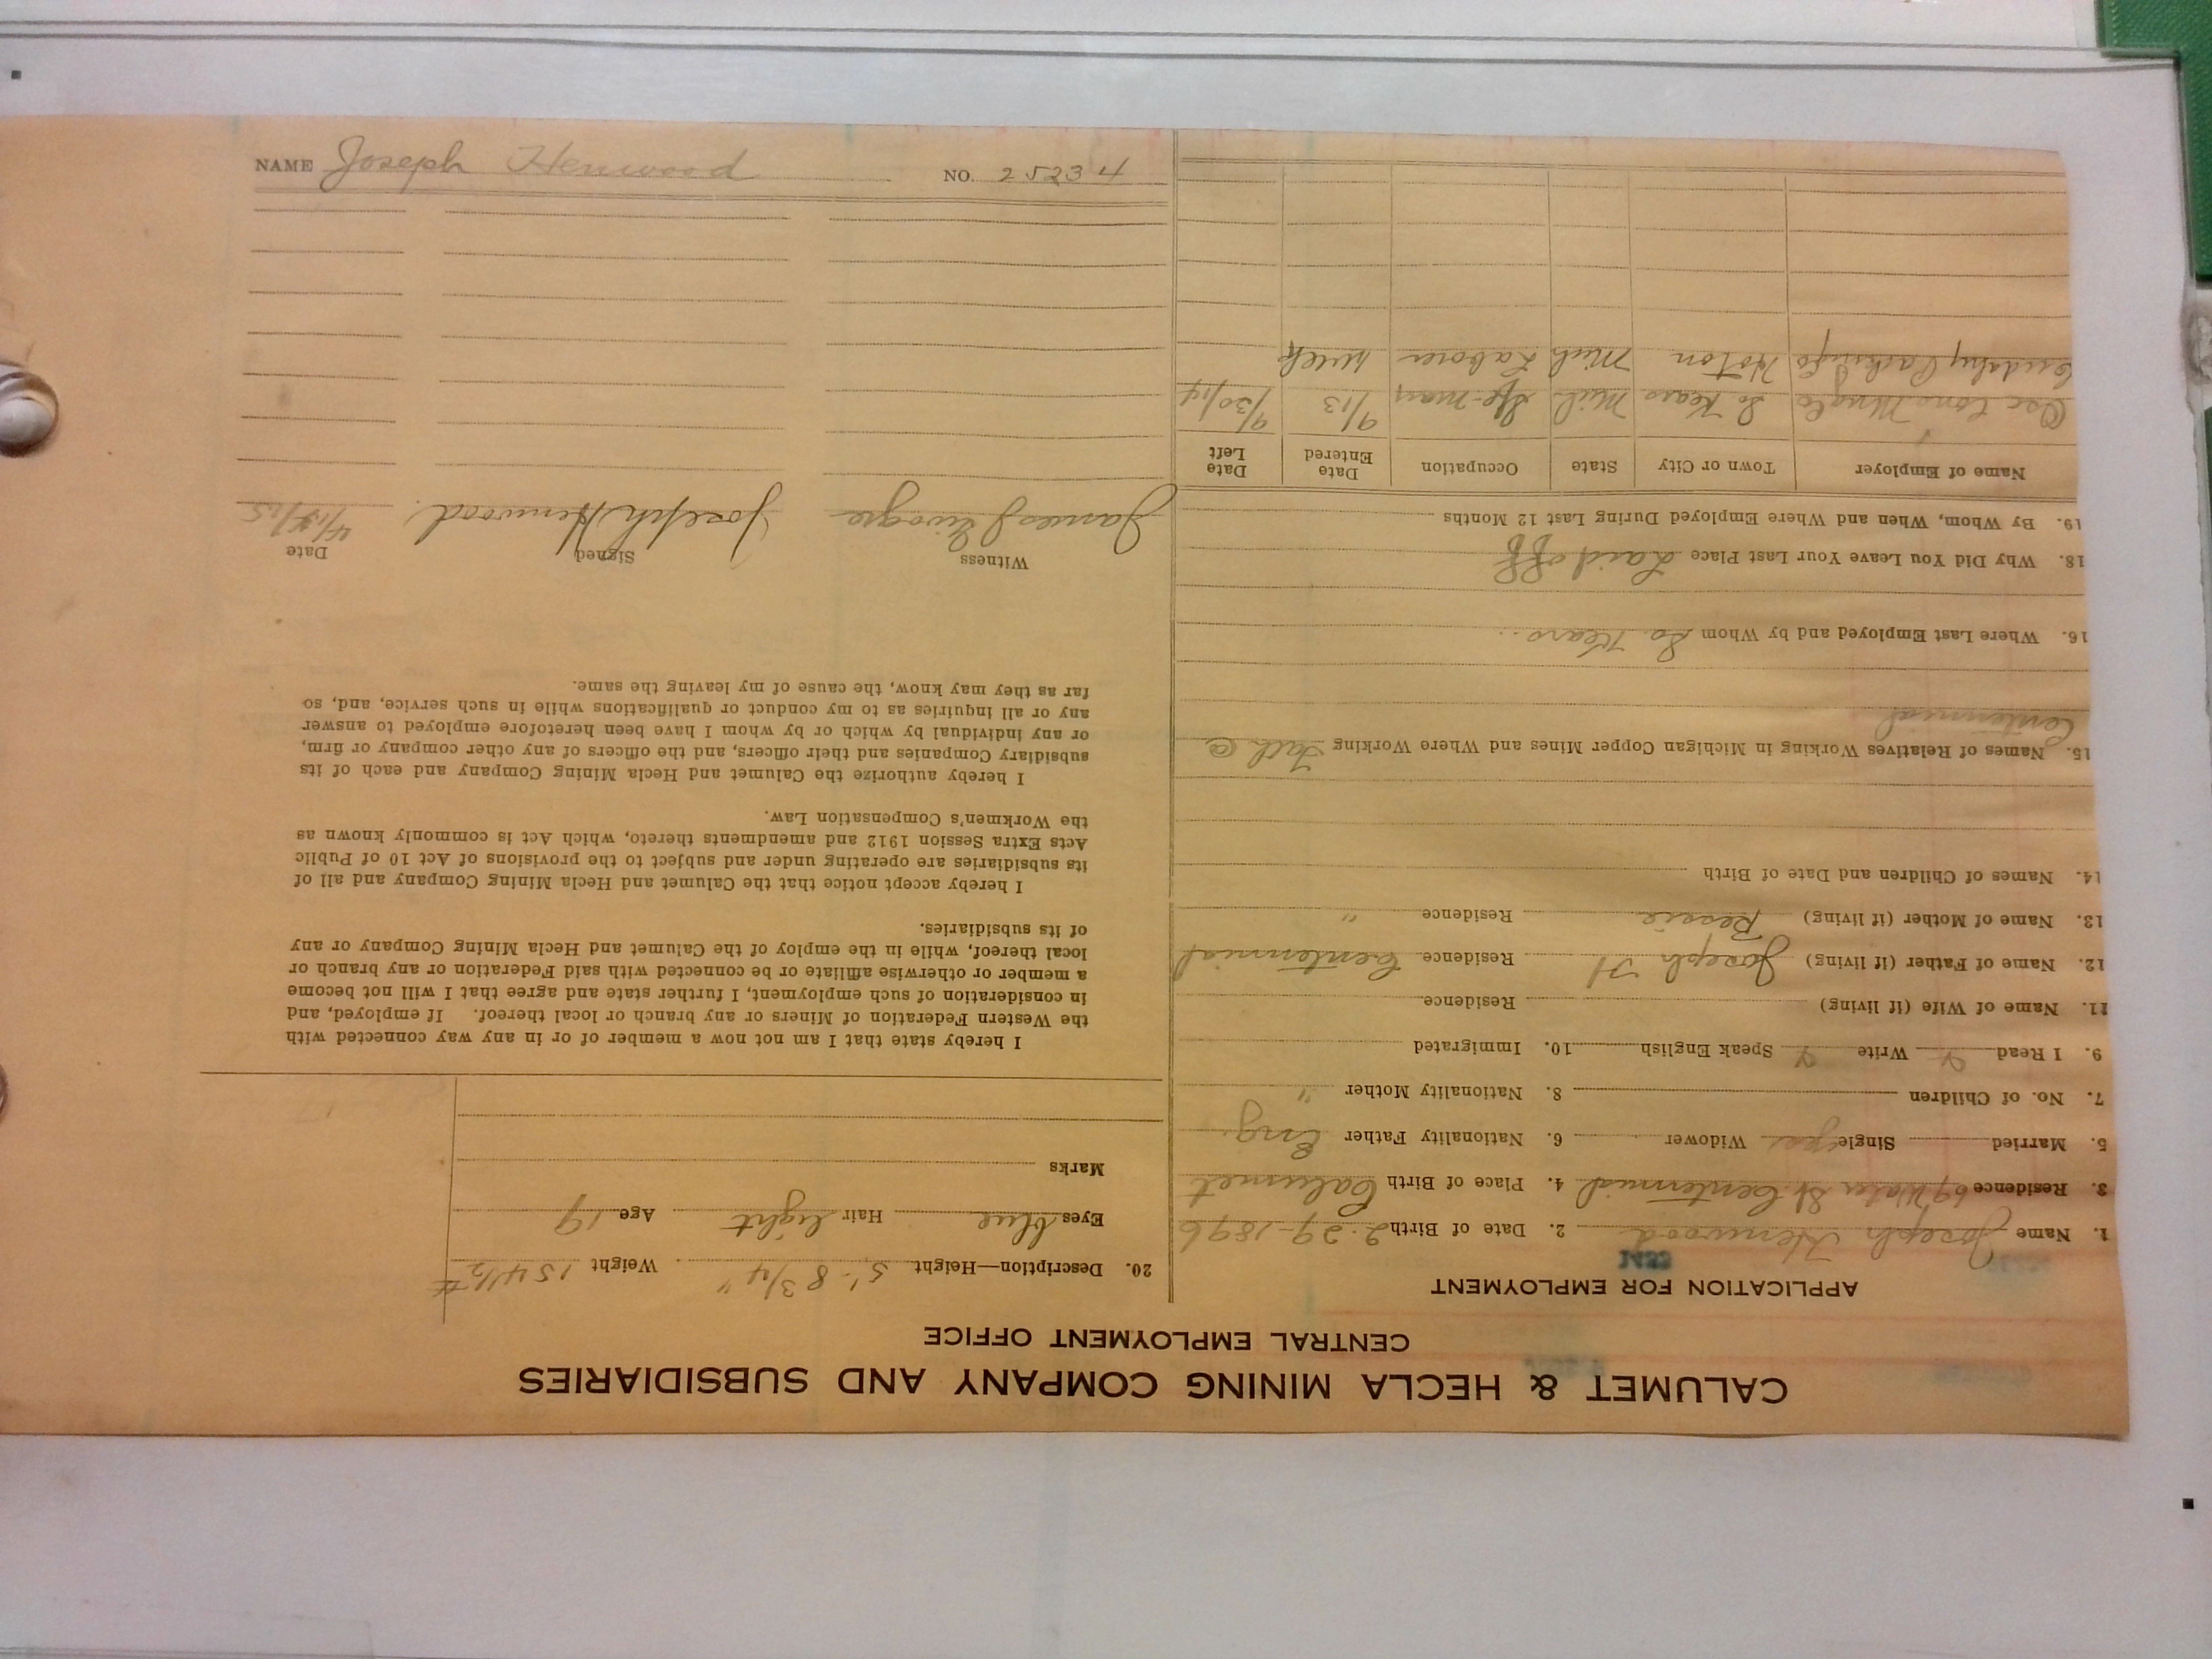 CALUMET & HECLA MINING COMPANY AND SUBSIDIARIES
CENTRAL EMPLOYMENT OFFICE
APPLICATION FOR EMPLOYMENT
1. Name Joseph Henwood 2. Date of Birth 2-29-1896
3. Residence 69 Water St. Centennial 4. Place of Birth Calumet
5. Married Single yes Widower 6. Nationality Father Eng.
7. No. of Children 8. Nationality Mother "
9. I Read Y Write Y Speak English 10. Immigrated
11. Name of Wife (if living) Residence
12. Name of Father (if living) Joseph H Residence Centennial
13. Name of Mother (if living) Bessie Residence "
14. Names of Children and Date of Birth
15. Names of Relatives Working in Michigan Copper Mines and Where Working Fath @
Centennial
16. Where Last Employed and by Whom So. Kears.
18. Why Did You Leave Your Last Place Laid off
19. By Whom, When and Where Employed During Last 12 Months
Name of Employer Town or City State Occupation Date Entered Date Left
Osc. Cons. Mng Co So Kears Mich 9/13 9/30/14
Cudahy Packing Co Hoton Mich Laborer
20. Description—Height 5'-8 3/4" Weight 154 1/2 #
Eyes blue Hair light Age 19
Marks
I hereby state that I am not now a member of or in any way connected with
the Western Federation of Miners or any branch or local thereof. If employed, and
in consideration of such employment, I further state and agree that I will not become
a member or otherwise affiliate or be connected with said Federation or any branch or
local thereof, while in the employ of the Calumet and Hecla Mining Company or any
of its subsidiaries.
I hereby accept notice that the Calumet and Hecla Mining Company and all of
its subsidiaries are operating under and subject to the provisions of Act 10 of Public
Acts Extra Session 1912 and amendments thereto, which Act is commonly known as
the Workmen's Compensation Law.
I hereby authorize the Calumet and Hecla Mining Company and each of its
subsidiary Companies and their officers, and the officers of any other company or firm,
or any individual by which or by whom I have been heretofore employed to answer
any or all inquiries as to my conduct or qualifications while in such service, and, so
far as they may know, the cause of my leaving the same.
Witness Signed Date
James Joseph Henwood
NAME Joseph Henwood NO. 25234